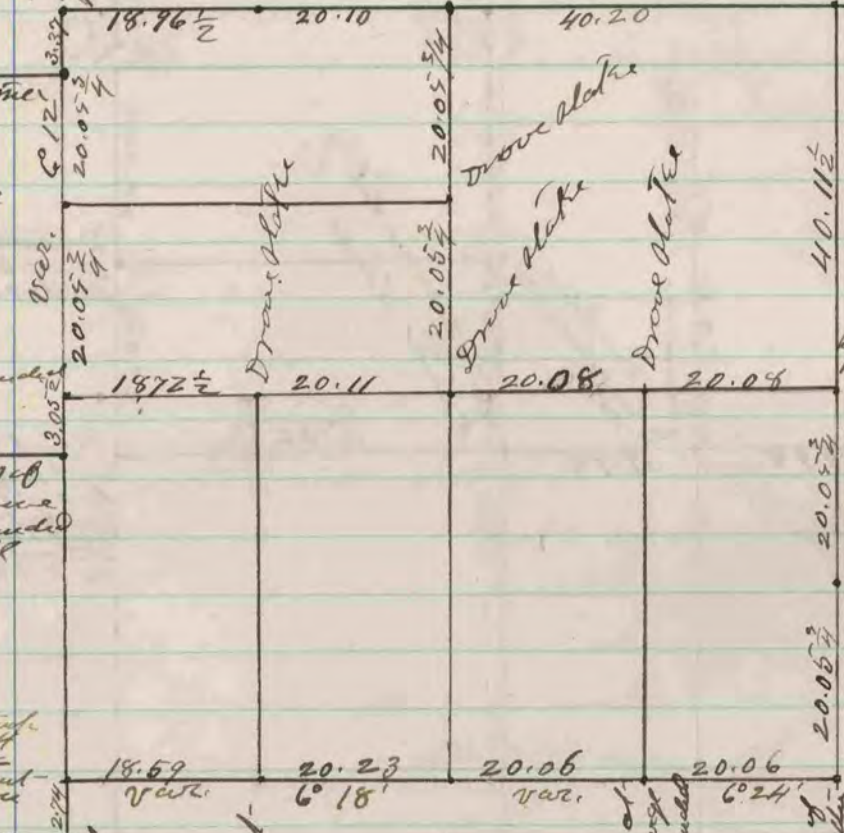 18.96 1/2 20.10 40.20
3.37
20.05 3/4
20.05 3/4
6° 12
Drove stake
Drove stake
40.11 1/2
Var.
20.05 3/4
Drove stake
20.05 3/4
Drove stake
1872 1/2 20.11 20.08 20.08
3.05 1/2
20.05 3/4
20.05 3/4
18.59 20.23 20.06 20.06
Var. 6° 18' Var. 6° 24'
2.74